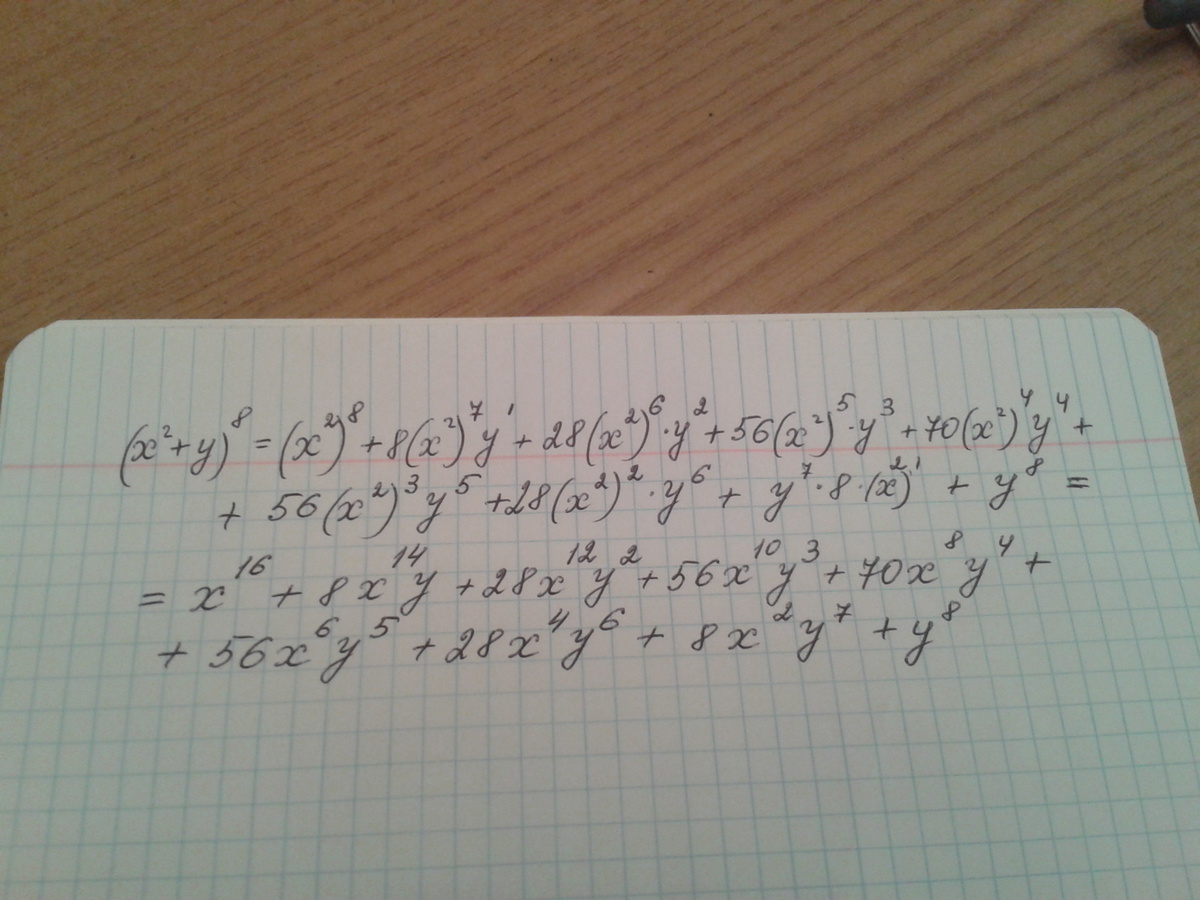 (x²+y)⁸=(x²)⁸+8(x²)⁷y¹+28(x²)⁶·y²+56(x²)⁵·y³+70(x²)⁴y⁴+
+ 56(x²)³y⁵+28(x²)²·y⁶+ y⁷·8·(x²)¹ + y⁸ =
= x¹⁶+ 8x¹⁴y +28x¹²y²+56x¹⁰y³+70x⁸y⁴+
+ 56x⁶y⁵ +28x⁴y⁶+ 8x²y⁷ +y⁸